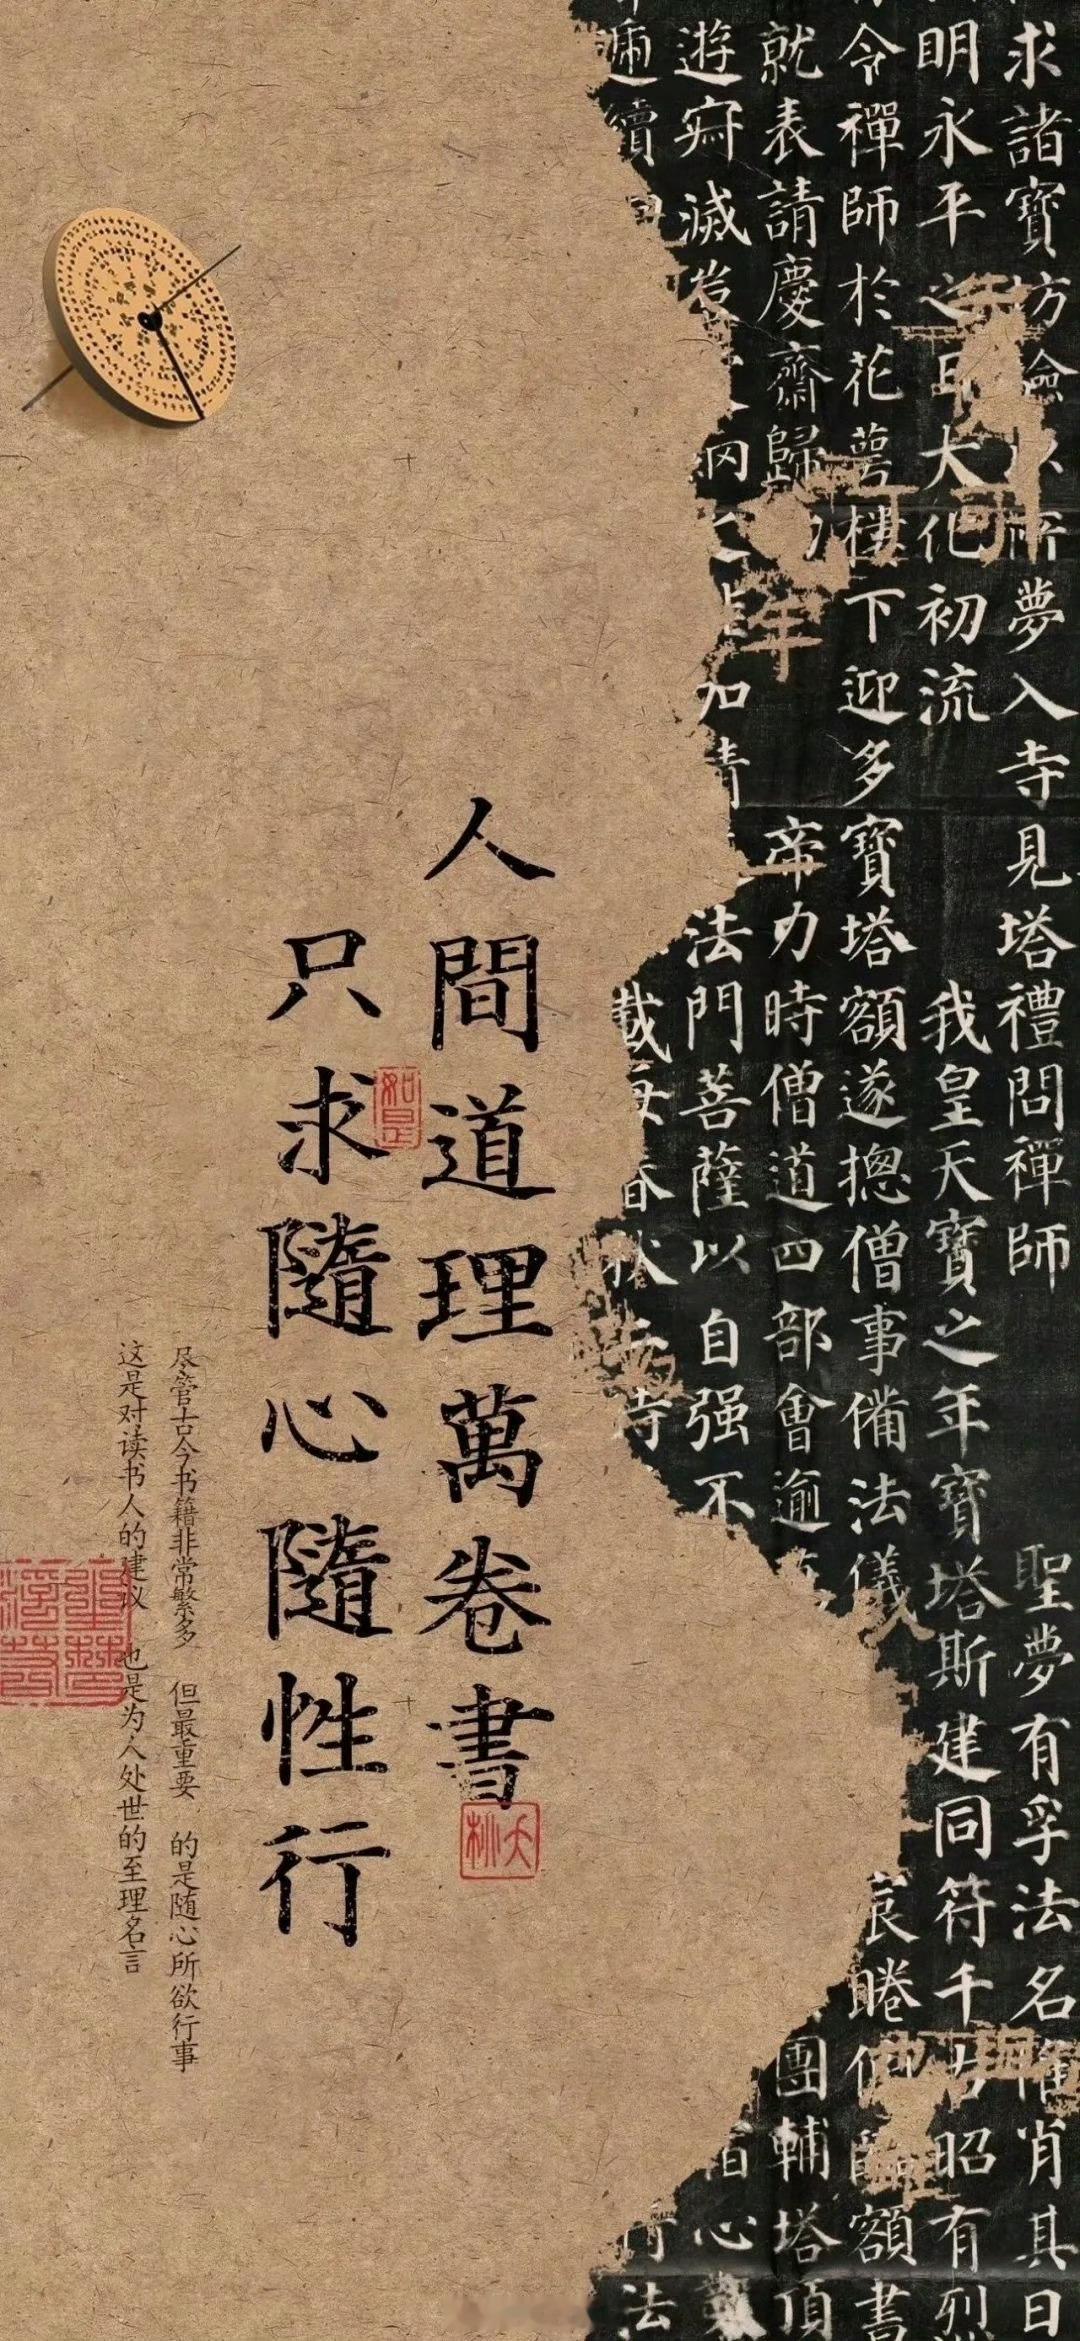 求諸寶坊驗以所夢入寺見塔禮問禪師
聖夢有孚法名惟肖其日
明永平之日大化初流
我皇天寶之年寶塔斯建同符千古昭有烈
令禪師於花萼樓下迎多寶塔額遂摠僧事備法儀
宸睠俯臨額書
就表請慶齋歸
帝力時僧道四部會逾
團輔塔頂
遊寂滅為
加精
法門菩薩以自强不
心
載每春秋二時
行法
人間道理萬卷書
只求隨心隨性行
如是
尽管古今书籍非常繁多 但最重要 的是随心所欲行事
这是对读书人的建议 也是为人处世的至理名言